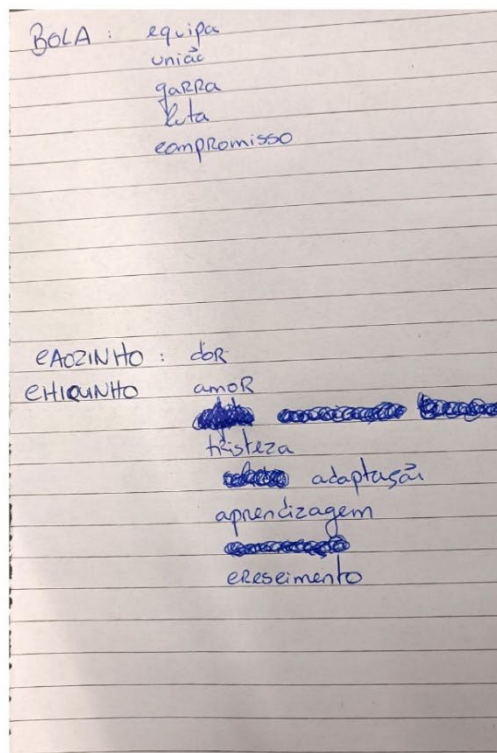 BOLA : equipa
união
gaRRa
luta
compRomisso
CAOZINHO : doR
CHIQUINHO amoR
tristeza
adaptação
aprendizagem
cRescimento